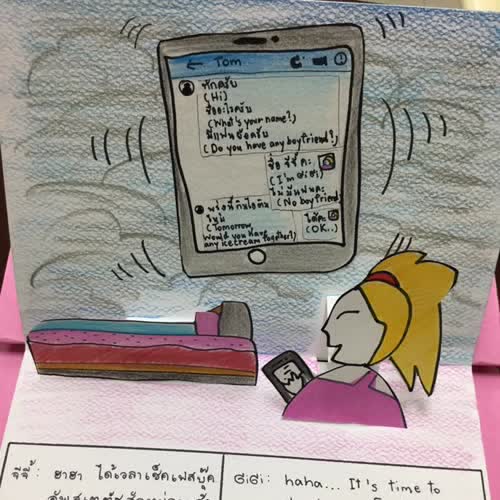 ← Tom
ทักครับ
(Hi)
ชื่ออะไรครับ
(What's your name?)
มีแฟนยังครับ
(Do you have any boyfriend?)
ชื่อ จีจี้ ค่ะ
(I'm GiGi)
ไม่มีแฟนค่ะ
(No boyfriend)
พรุ่งนี้กินไอติม
ไหม
(Tomorrow,
Would you have
any icecream together?)
ได้ค่ะ
(OK..)
จีจี้ : ฮาฮา ได้เวลาเช็คเฟสบุ๊ค
GiGi : haha... It's time to